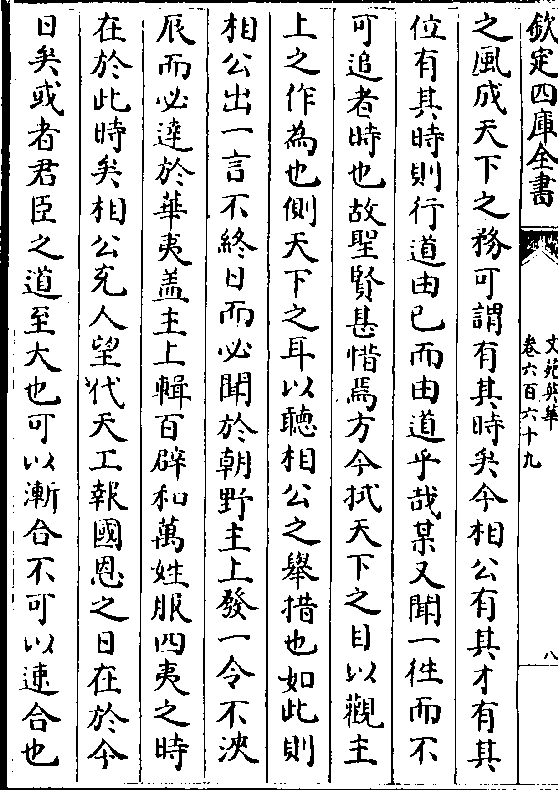 欽定四庫全書
文苑英華
卷六百六十九
八
之風成天下之務可謂有其時矣今相公有其才有其
位有其時則行道由已而由道乎哉某又聞一徃而不
可追者時也故聖賢甚惜焉方今拭天下之目以觀主
上之作為也側天下之耳以聽相公之舉措也如此則
相公出一言不終日而必聞於朝野主上發一令不浹
辰而必達於華夷盖主上輯百辟和萬姓服四夷之時
在於此時矣相公充人望代天工報國恩之日在於今
日矣或者君臣之道至大也可以漸合不可以速合也